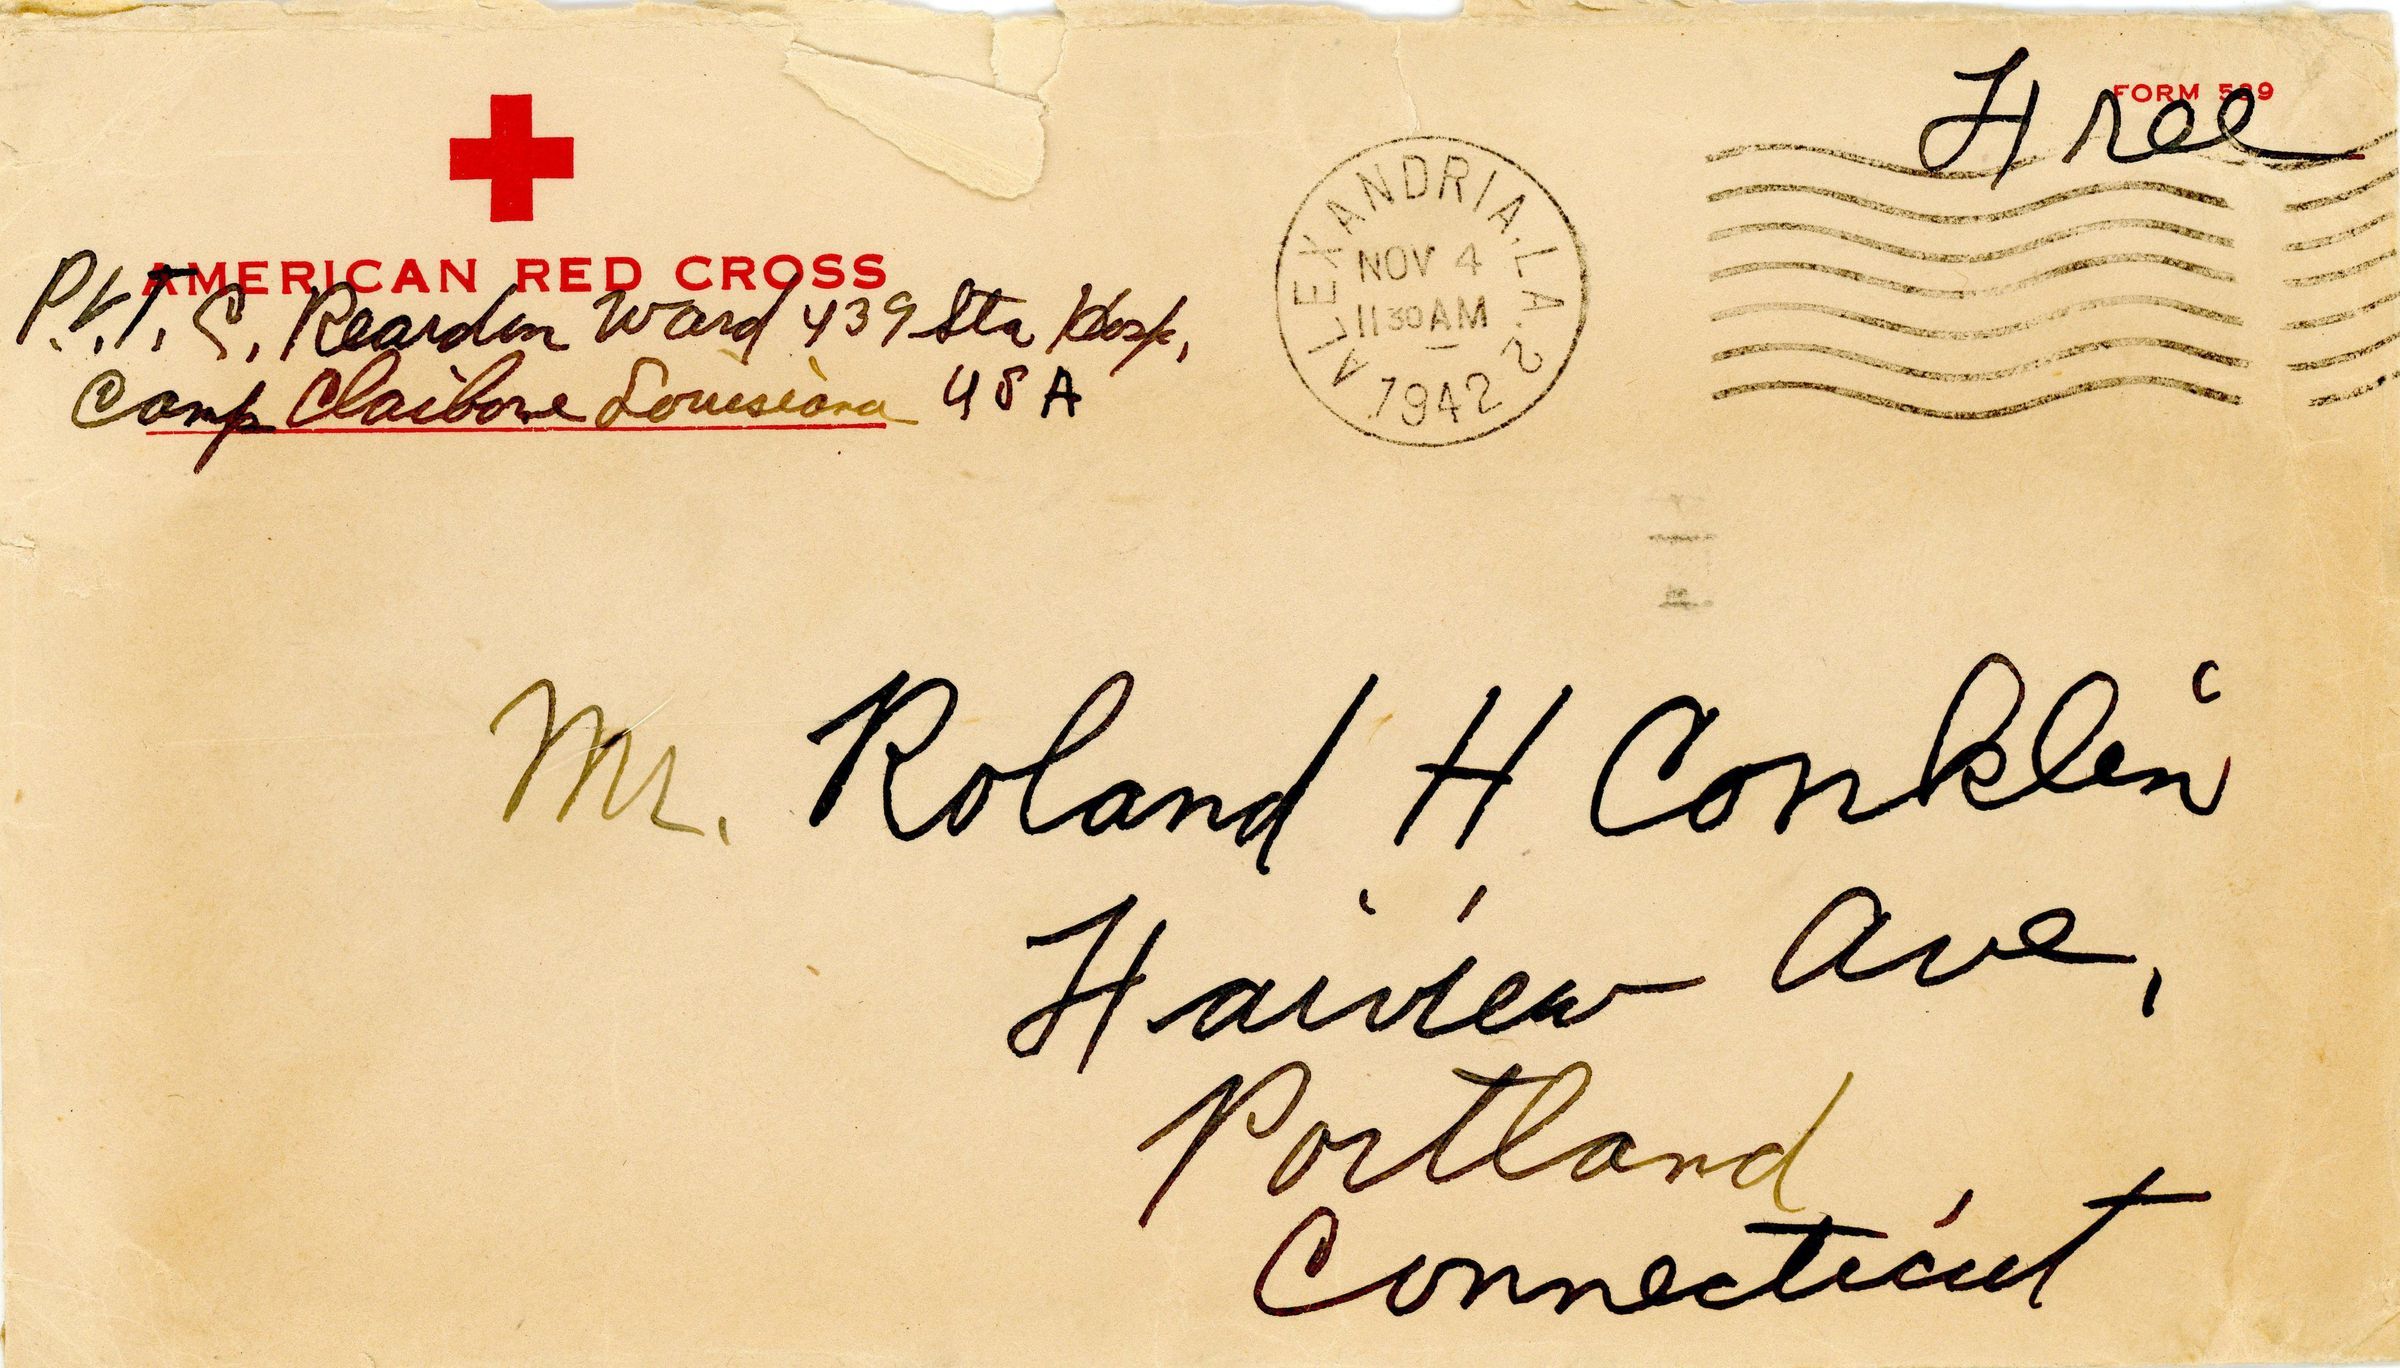 Free
FORM 539
AMERICAN RED CROSS
Pvt. S. Reardon Ward 439 Sta Hosp,
Camp Claiborne Louisiana USA
ALEXANDRIA, LA. 2
NOV 4
11 30 AM
1942
Mr. Roland H Conklin
Faiview Ave,
Portland
Connecticut